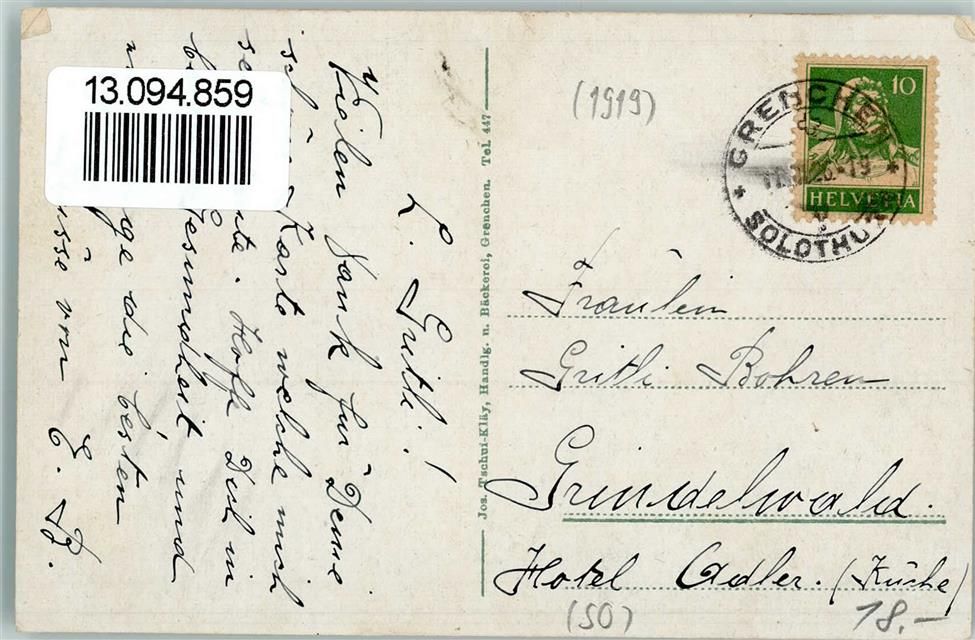 13.094.859
(1919)
10
HELVETIA
GRENCHEN
SOLOTHURN
L. Gritli!
Vielen Dank für Deine
schöne Karte welche mich
Hoffe Dich in
Gesundheit und
die besten
von E. B.
Jos. Tschui-Kläy, Handlg. u. Bäckerei, Grenchen. Tel. 447
Fräulein
Gritli Bohren
Grindelwald.
Hotel Adler. (Küche)
(SO)
18.-